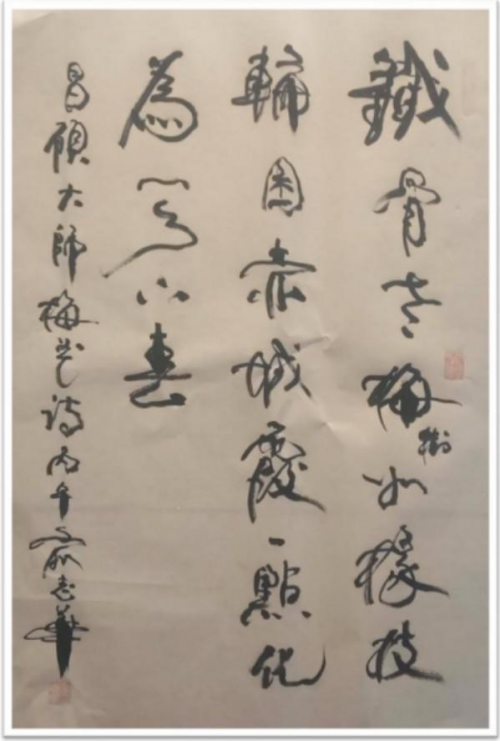 鐵骨老梅樹如椽枝
輪囷赤城霞一點化
為天下春
昌碩大師梅花詩丙午俞志華